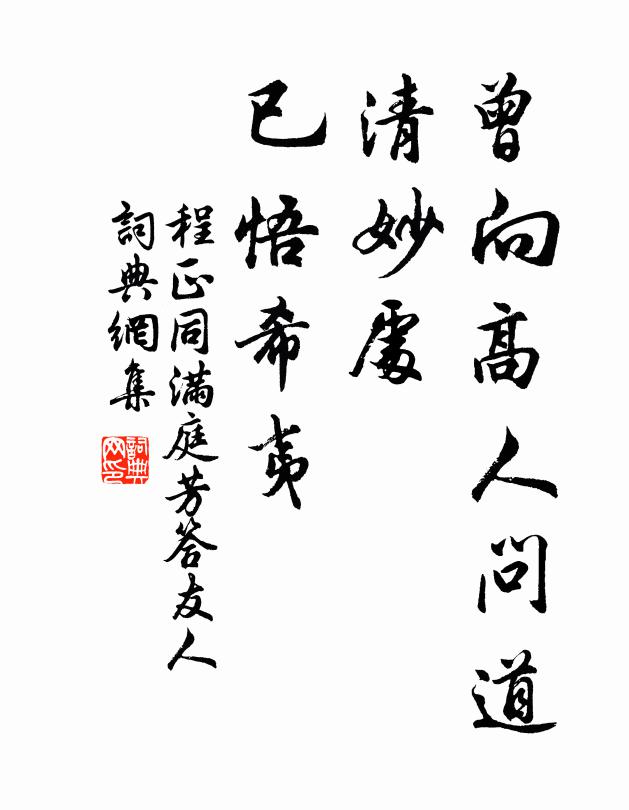 曾向高人問道
清妙處
已悟希夷
程正同滿庭芳答友人
詞典網集
詞典網印